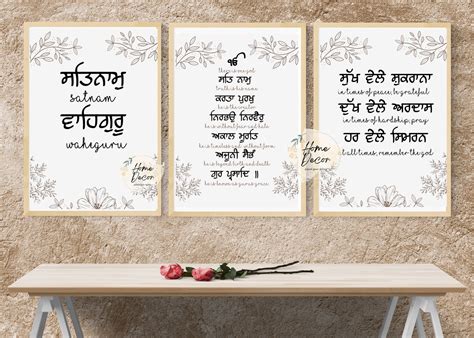 ਸਤਿਨਾਮੁ
satnam
ਵਾਹਿਗੁਰੂ
waheguru
Home
Decor
ੴ
there is one god
ਸਤਿ ਨਾਮੁ
truth is his name
ਕਰਤਾ ਪੁਰਖੁ
he is the creator
ਨਿਰਭਉ ਨਿਰਵੈਰੁ
he is without fear and hate
ਅਕਾਲ ਮੂਰਤਿ
he is timeless and without form
ਅਜੂਨੀ ਸੈਭੰ
he is beyond birth and death
ਗੁਰ ਪ੍ਰਸਾਦਿ ॥
he is known by guru's grace
Home
Decor
ਸੁੱਖ ਵੇਲੇ ਸ਼ੁਕਰਾਨਾ
in times of peace, be grateful
ਦੁੱਖ ਵੇਲੇ ਅਰਦਾਸ
in times of hardship, pray
ਹਰ ਵੇਲੇ ਸਿਮਰਨ
at all times, remember the god
Home
Decor